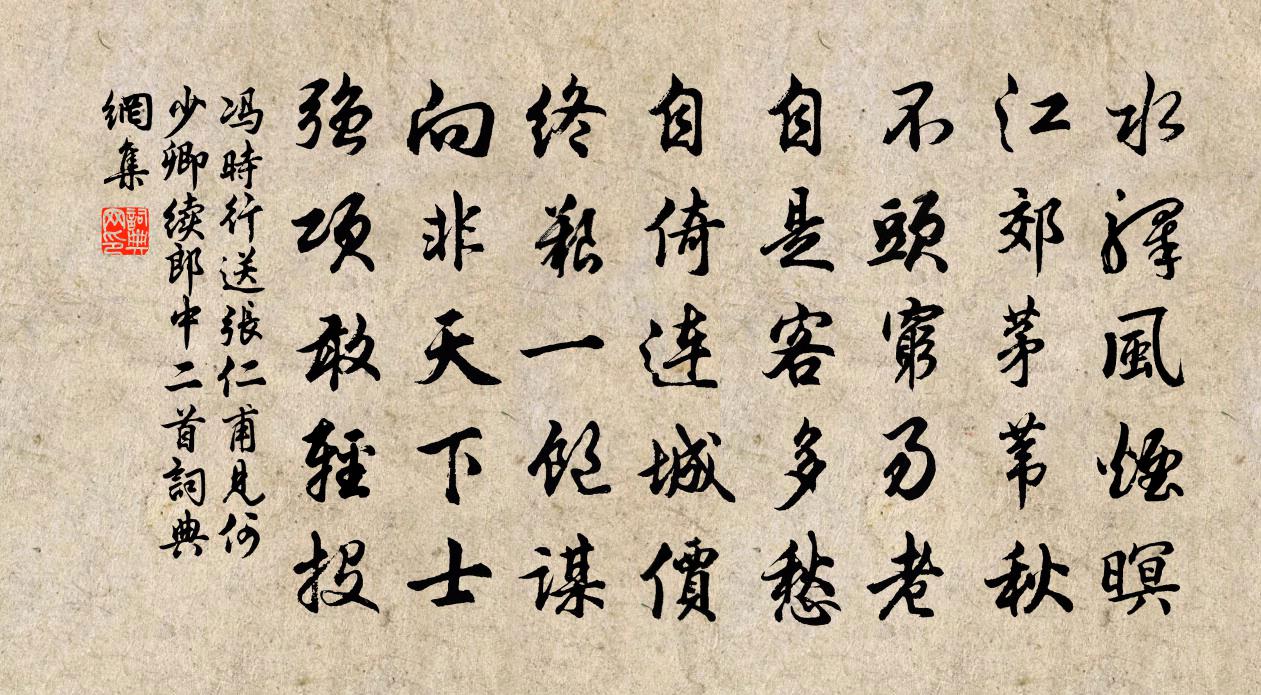 水驛風煙暝
江郊茅葦秋
不頭窮易老
自是客多愁
自倚連城價
終艱一飽謀
向非天下士
強項敢輕投
冯時行送張仁甫見何
少卿續郎中二首詞典
網集
詞典网印